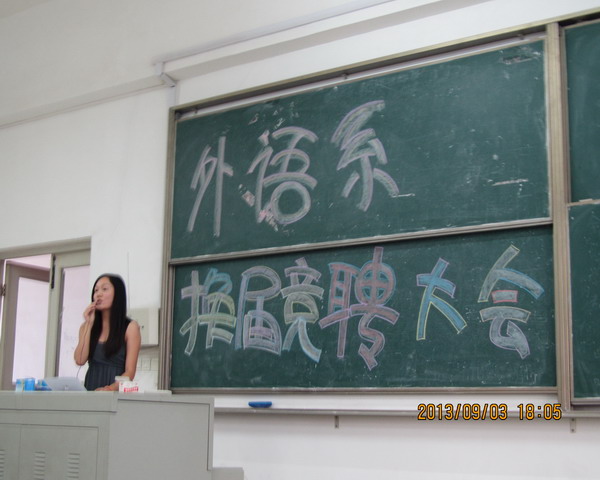 外语系
换届竞聘大会
2013/09/03 18:05